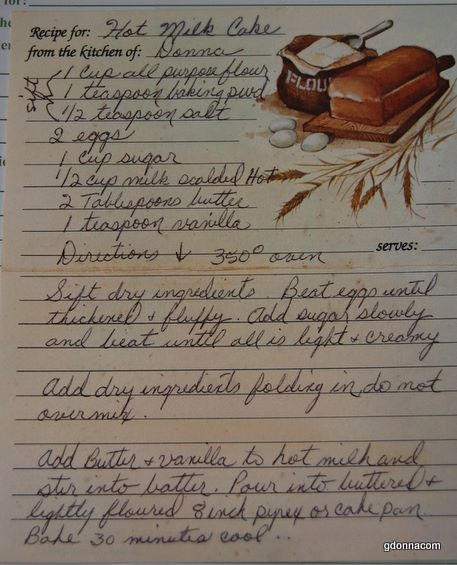 for:
Recipe for: Hot Milk Cake
from the kitchen of: Donna
sift
1 cup all purpose flour
1 teaspoon baking powd
1/2 teaspoon salt
FLOU
2 eggs
1 cup sugar
1/2 cup milk scalded Hot
2 Tablespoons butter
1 teaspoon vanilla
serves:
Directions ↓ 350° oven
Sift dry ingredients. Beat eggs until
thickened + fluffy. Add sugar slowly
and beat until all is light + creamy
Add dry ingredients folding in, do not
overmix.
Add Butter + vanilla to hot milk and
stir into batter. Pour into buttered +
lightly floured 8 inch pyrex or cake pan.
Bake 30 minutes cool ..
gdonnacom